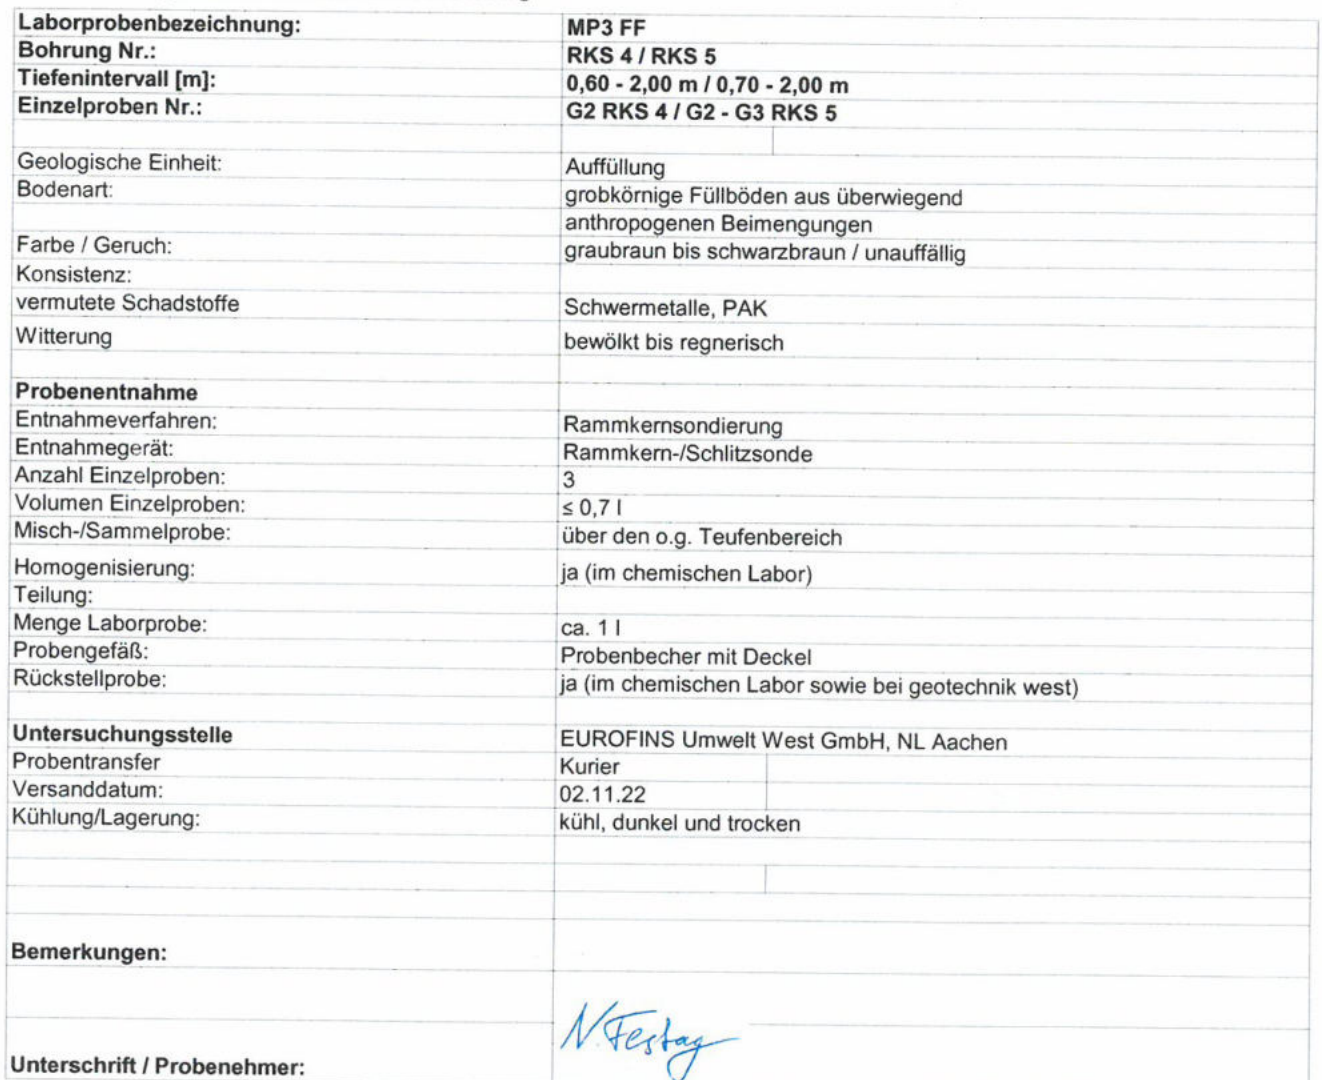 Laborprobenbezeichnung: MP3 FF
Bohrung Nr.: RKS 4 / RKS 5
Tiefenintervall [m]: 0,60 - 2,00 m / 0,70 - 2,00 m
Einzelproben Nr.: G2 RKS 4 / G2 - G3 RKS 5
Geologische Einheit: Auffüllung
Bodenart: grobkörnige Füllböden aus überwiegend
anthropogenen Beimengungen
Farbe / Geruch: graubraun bis schwarzbraun / unauffällig
Konsistenz:
vermutete Schadstoffe Schwermetalle, PAK
Witterung bewölkt bis regnerisch
Probenentnahme
Entnahmeverfahren: Rammkernsondierung
Entnahmegerät: Rammkern-/Schlitzsonde
Anzahl Einzelproben: 3
Volumen Einzelproben: ≤ 0,7 l
Misch-/Sammelprobe: über den o.g. Teufenbereich
Homogenisierung: ja (im chemischen Labor)
Teilung:
Menge Laborprobe: ca. 1 l
Probengefäß: Probenbecher mit Deckel
Rückstellprobe: ja (im chemischen Labor sowie bei geotechnik west)
Untersuchungsstelle EUROFINS Umwelt West GmbH, NL Aachen
Probentransfer Kurier
Versanddatum: 02.11.22
Kühlung/Lagerung: kühl, dunkel und trocken
Bemerkungen:
N. Festag
Unterschrift / Probenehmer: